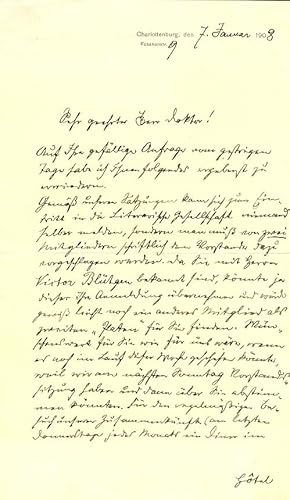 Charlottenburg, den 7. Januar 1908
9
Sehr geehrter Herr Doktor!
Auf Ihre gefällige Anfrage vom gestrigen
Tage habe ich Ihnen folgendes ergebenst zu
erwiedern.
Gemäß unseren Satzungen kann sich zum Ein-
tritt in die Literarische Gesellschaft niemand
selber melden, sondern man muß von zwei
Mitgliedern schriftlich dem Vorstande dazu
vorgeschlagen werden. Da Sie mit Herrn
Victor Blüthgen bekannt sind, könnte ja
dieser Ihre Anmeldung übernehmen und würde
gewiß leicht noch ein anderes Mitglied als
zweiten „Paten" für Sie finden. Wün-
schenswert für Sie wie für uns wäre, wenn
es noch im Lauf dieser Woche geschehen könnte,
weil wir am nächsten Sonntag Vorstands-
sitzung haben und dann über Sie abstim-
men könnten. Für den regelmäßigen Be-
such unserer Zusammenkünfte (am letzten
Donnerstage jedes Monats ein Diner im
Hôtel